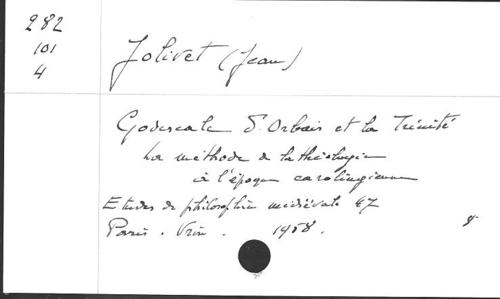 282
101
4
Jolivet (Jean)
Godescalc d'Orbais et la Trinité
La méthode de la théologie
à l'époque carolingienne
Etudes de philosophie médiévale 47
Paris. Vrin. 1958.